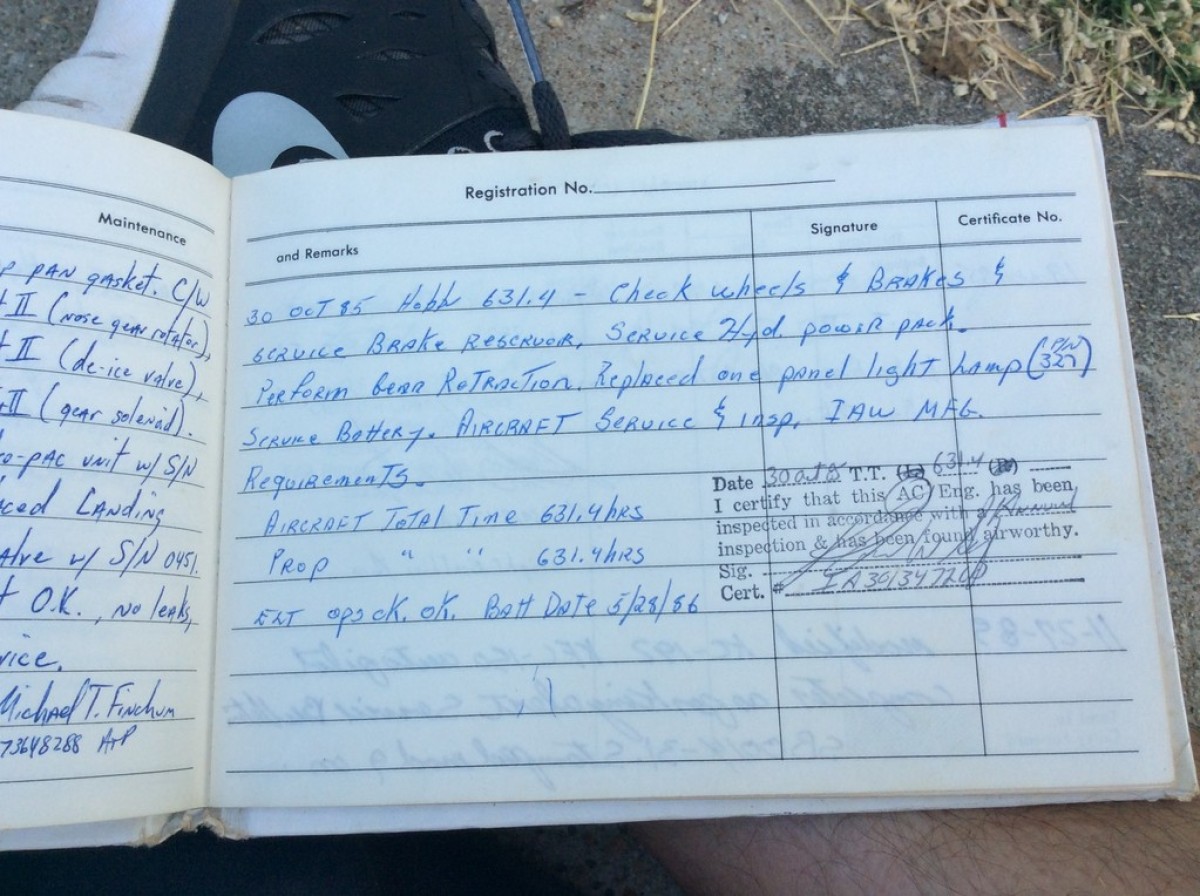 Maintenance
P PAN gasket. C/W
II (nose gear rotator),
II (de-ice valve),
II (gear solenoid).
O-PAC unit w/ S/N
ced LANding
Alve w/ S/N 0451.
O.K., NO leaks,
vice.
Michael T. Finchum
73648288 A+P
Registration No.
and Remarks
Signature
Certificate No.
30 OCT 85 Hobb 631.4 - Check wheels & BRAKES &
SERVICE BRAKE RESERVOIR, SERVICE Hyd. POWER pack.
Perform Gear RETRACTION. Replaced one panel light Lamp (P/N 327)
Service Battery. AIRCRAFT SERVICE & insp. IAW MFG.
REQUIREMENTS.
AIRCRAFT TOTAL TIME 631.4 hRS
PROP " " 631.4 hRS
ELT ops ck. OK. BATT DATE 5/28/86
Date 30 Oct 85 T.T. 631.4
I certify that this AC Eng. has been
inspected in accordance with a Annual
inspection & has been found airworthy.
Sig.
Cert. #